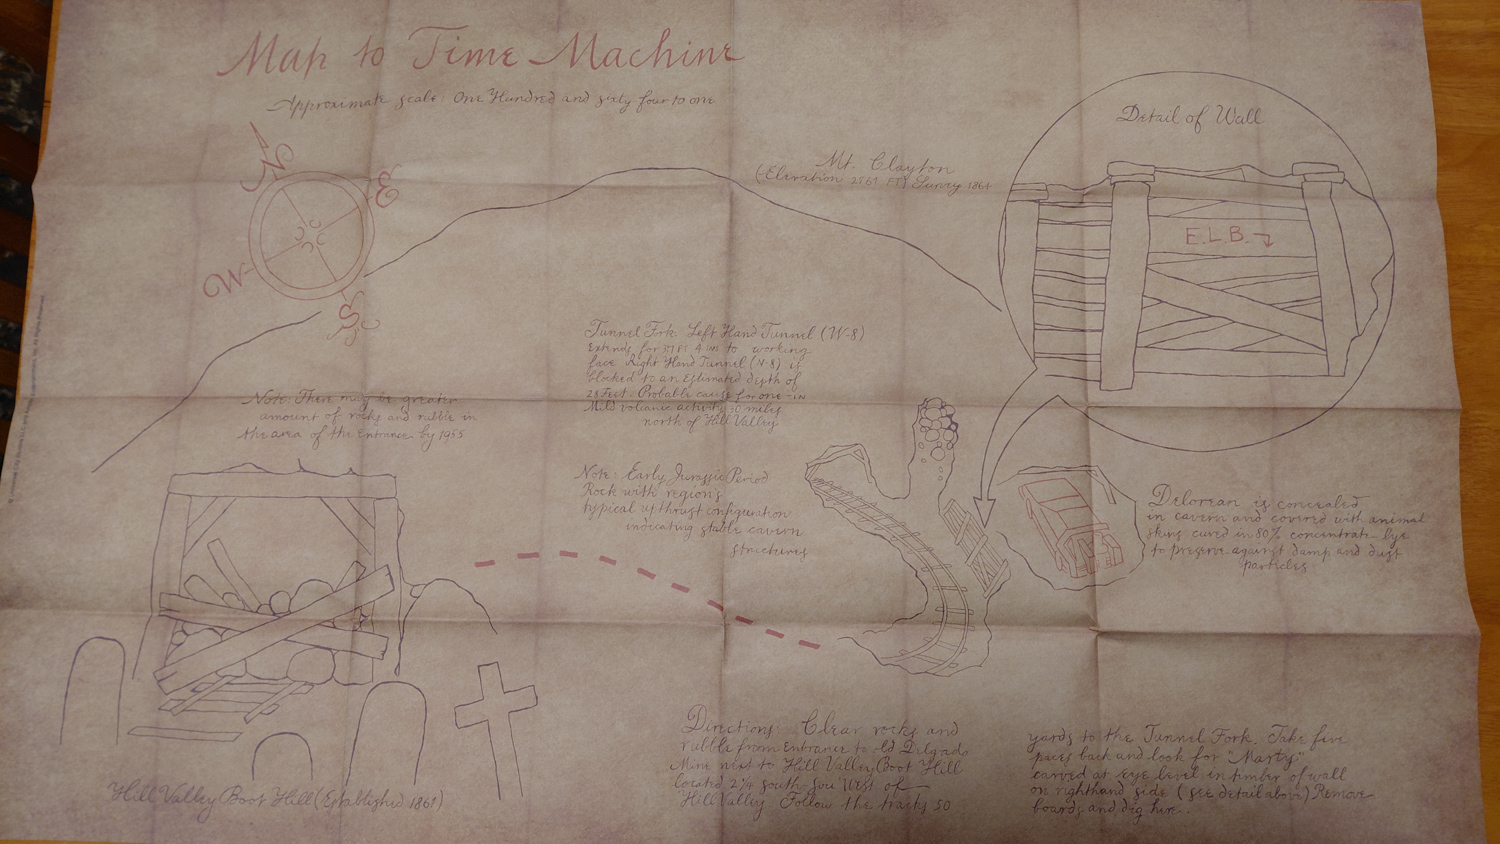 Map to Time Machine
Approximate scale: One Hundred and sixty four to one
N
E
W
S
Mt. Clayton
(Elevation 2761 FT) Survey 1861
Detail of Wall
E.L.B.
Tunnel Fork: Left Hand Tunnel (W-8)
Extends for 4 to working
face Right Hand Tunnel (N-8) is
blocked to an estimated depth of
28 Feet. Probable cause for one-in
Mild volcanic activity miles
north of Hill Valley
Note: There may be greater
amount of rocks and rubble in
the area of the Entrance by 1955
Note: Early Jurassic Period
Rock with region's
typical up thrust configuration
indicating stable cavern
structures
Delorean is concealed
in cavern and covered with animal
skins cured in 80% concentrate lye
to preserve against damp and dust
particles
Hill Valley Boot Hill (Established 1861)
Directions: Clear rocks and
rubble from Entrance to old Delgado
Mine next to Hill Valley Boot Hill
Located 2¼ South-Sou West of
Hill Valley. Follow the tracks 50
yards to the Tunnel Fork. Take five
paces back and look for "Marty"
carved at eye level in timber of wall
on righthand side (see detail above) Remove
boards and dig here.